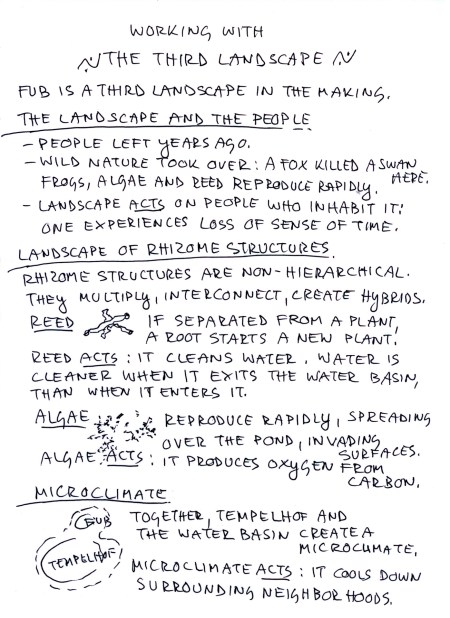 WORKING WITH
THE THIRD LANDSCAPE
FUB IS A THIRD LANDSCAPE IN THE MAKING.
THE LANDSCAPE AND THE PEOPLE
- PEOPLE LEFT YEARS AGO.
- WILD NATURE TOOK OVER: A FOX KILLED A SWAN HERE.
FROGS, ALGAE AND REED REPRODUCE RAPIDLY.
- LANDSCAPE ACTS ON PEOPLE WHO INHABIT IT:
ONE EXPERIENCES LOSS OF SENSE OF TIME.
LANDSCAPE OF RHIZOME STRUCTURES.
RHIZOME STRUCTURES ARE NON-HIERARCHICAL.
THEY MULTIPLY, INTERCONNECT, CREATE HYBRIDS.
REED IF SEPARATED FROM A PLANT,
A ROOT STARTS A NEW PLANT.
REED ACTS: IT CLEANS WATER. WATER IS
CLEANER WHEN IT EXITS THE WATER BASIN,
THAN WHEN IT ENTERS IT.
ALGAE REPRODUCE RAPIDLY, SPREADING
OVER THE POND, INVADING
SURFACES.
ALGAE ACTS: IT PRODUCES OXYGEN FROM
CARBON.
MICROCLIMATE
FUB
TEMPELHOF
TOGETHER, TEMPELHOF AND
THE WATER BASIN CREATE A
MICROCLIMATE.
MICROCLIMATE ACTS: IT COOLS DOWN
SURROUNDING NEIGHBORHOODS.